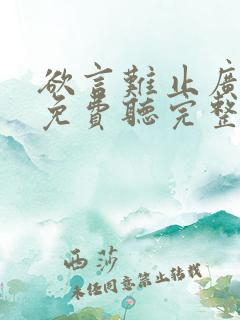 欲言難止廣
免費聽完整
西莎
未經同意禁止轉載